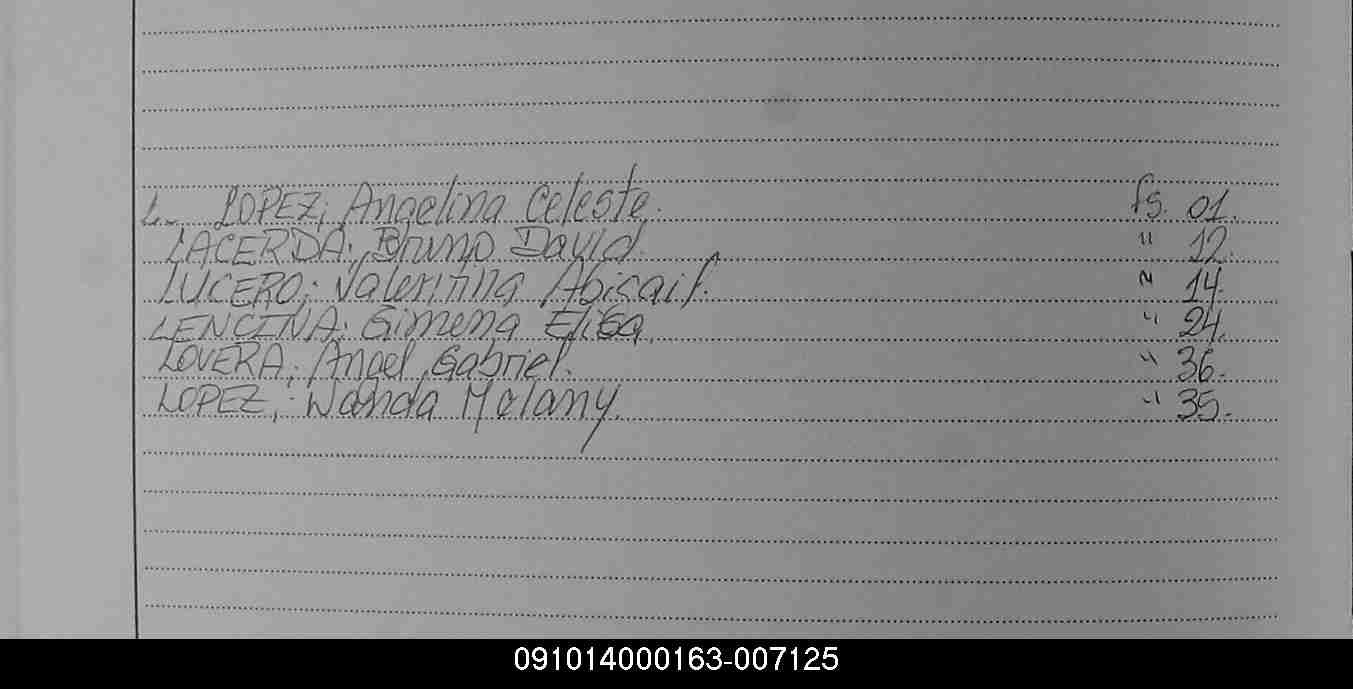 L.- LOPEZ; Angelina Celeste. fs. 01.
LACERDA; Bruno David. " 12.
LUCERO; Valentina Abigail. " 14.
LENCINA; Gimena Elisa. " 24.
LOVERA; Angel Gabriel. " 36.-
LOPEZ; Wanda Melany. " 35.-
091014000163-007125